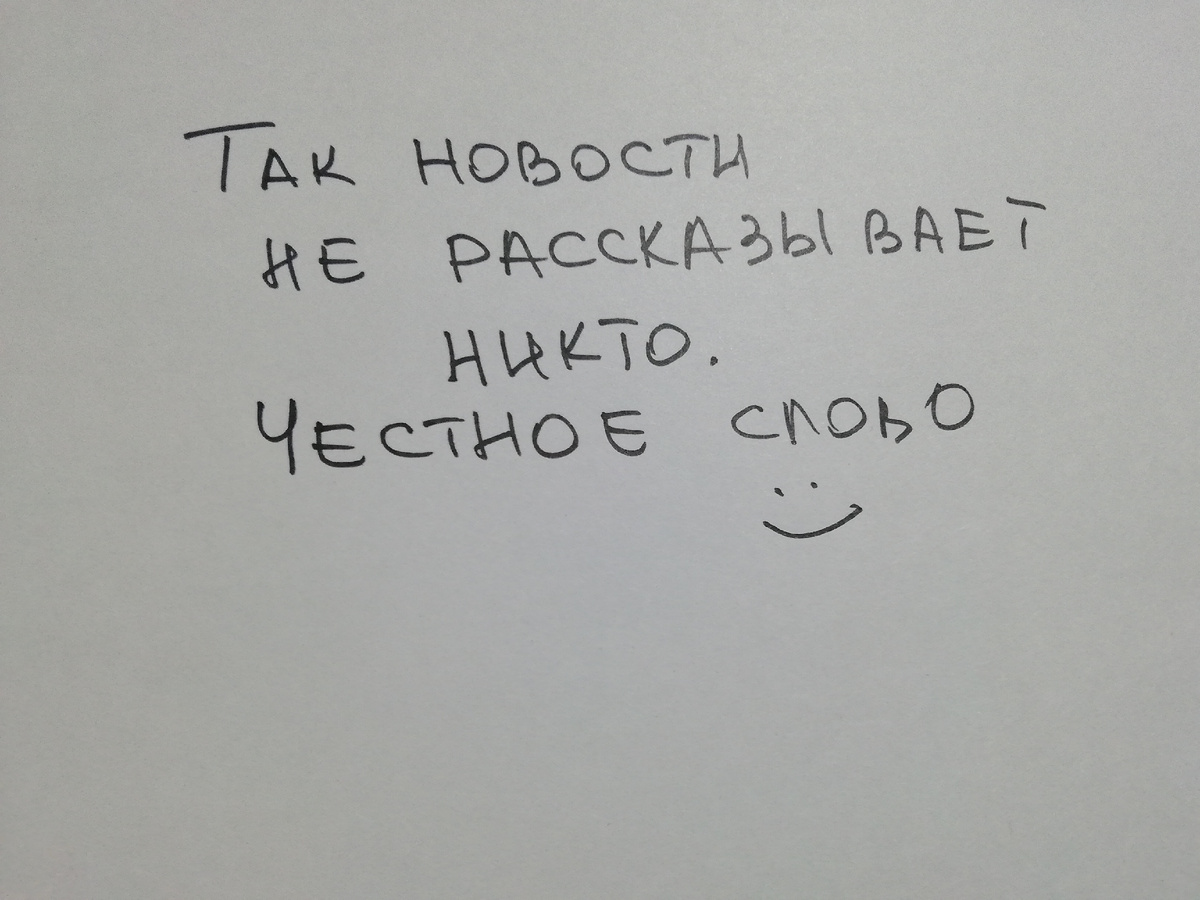 Так новости
не рассказывает
никто.
Честное слово